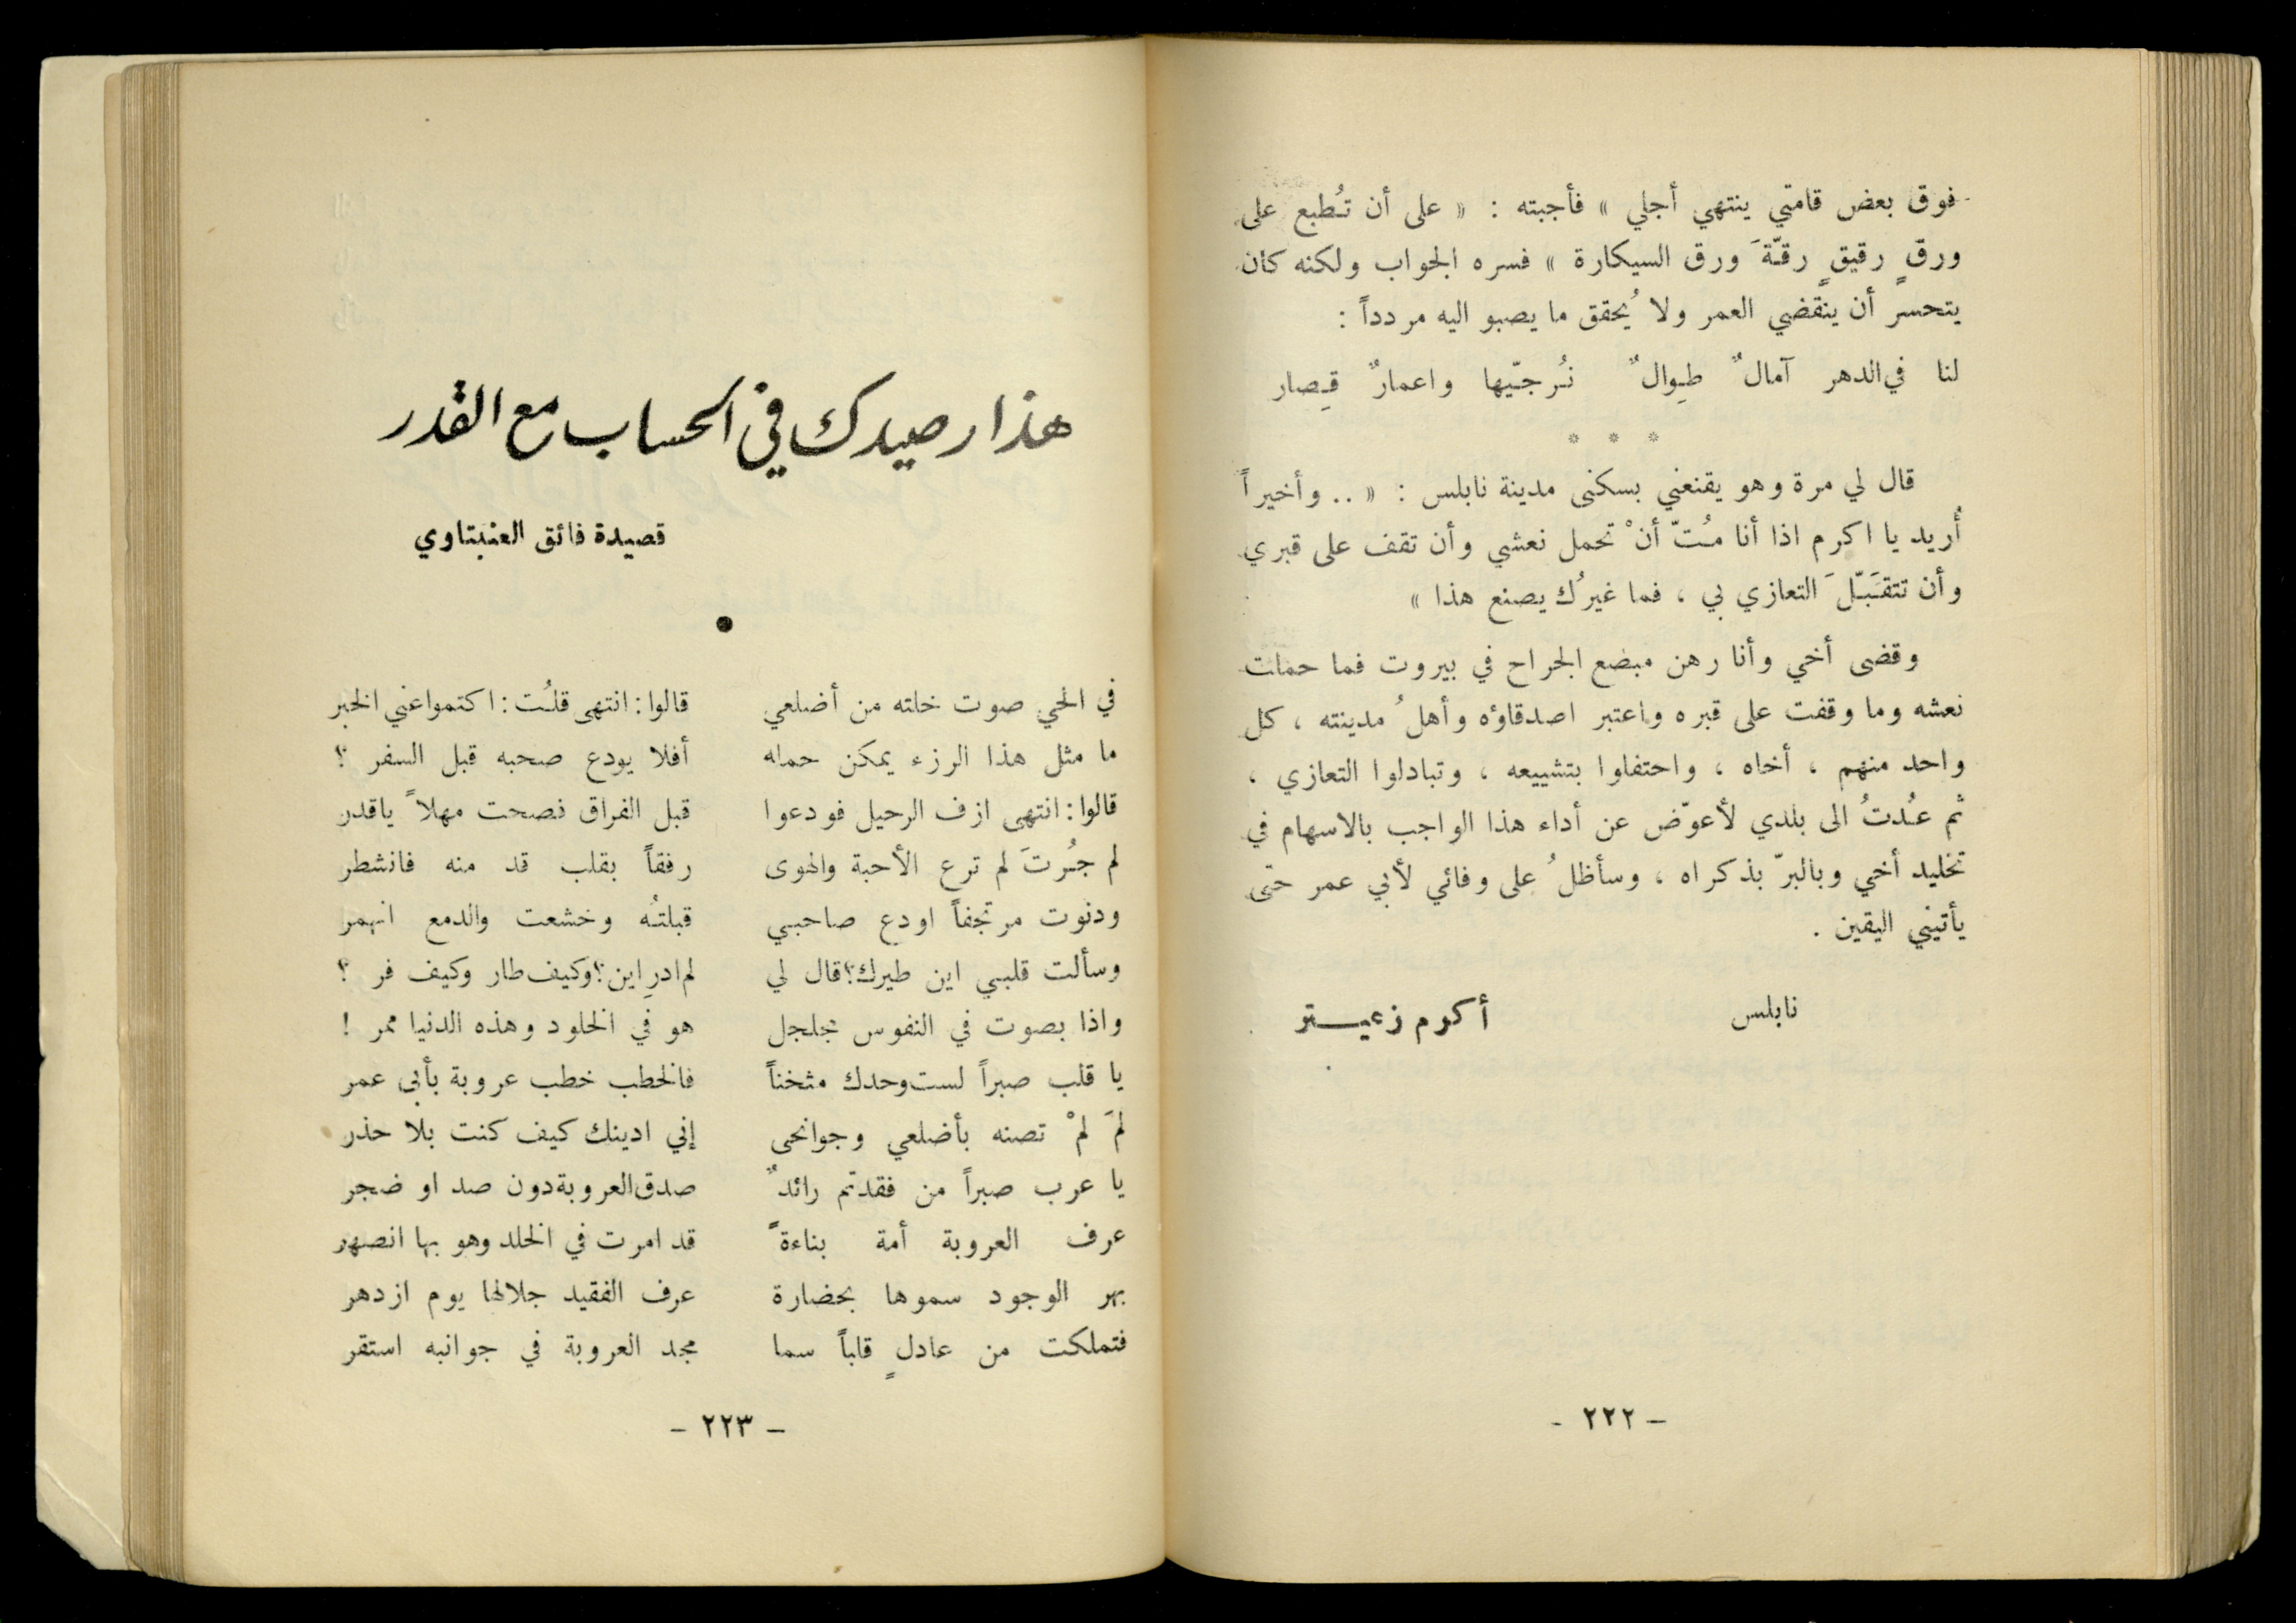 فوق بعض قامتي ينتهي أجلي » فأجبته : « على أن تُطبع على
ورقٍ رقيقٍ رقّةَ ورق السيكارة » فسره الجواب ولكنه كان
يتحسر أن ينقضي العمر ولا يُحقق ما يصبو اليه مردداً :
لنا في الدهر آمالٌ طِوالٌ نُرجّيها واعمارٌ قِصار
* * *
قال لي مرة وهو يقنعني بسكنى مدينة نابلس : « .. وأخيراً
أُريد يا اكرم اذا أنا مُتّ أنْ تحمل نعشي وأن تقف على قبري
وأن تتقبّلَ التعازي بي ، فما غيرُك يصنع هذا »
وقضى أخي وأنا رهن مبضع الجراح في بيروت فما حملت
نعشه وما وقفت على قبره واعتبر اصدقاؤه وأهلُ مدينته ، كل
واحد منهم ، أخاه ، واحتفلوا بتشييعه ، وتبادلوا التعازي ،
ثم عُدتُ الى بلدي لأعوّض عن أداء هذا الواجب بالاسهام في
تخليد أخي وبالبرّ بذكراه ، وسأظلُ على وفائي لأبي عمر حتى
يأتيني اليقين .
نابلس أكرم زعيتر
- ٢٢٢ -
هذا رصيدك في الحساب مع القدر
قصيدة فائق العنبتاوي
●
في الحي صوت خلته من أضلعي قالوا : انتهى قلُت : اكتموا عني الخبر
ما مثل هذا الرزء يمكن حمله أفلا يودع صحبه قبل السفر ؟
قالوا : انتهى ازف الرحيل فودعوا قبل الفراق فصحت مهلاً ياقدر
لم جُرتَ لم ترع الأحبة والهوى رفقاً بقلب قد منه فانشطر
ودنوت مرتجفاً اودع صاحبي قبلتُه وخشعت والدمع انهمر
وسألت قلبي اين طيرك؟ قال لي لم ادرِ اين؟ وكيف طار وكيف فر ؟
واذا بصوت في النفوس مجلجل هو في الخلود وهذه الدنيا ممر !
يا قلب صبراً لست وحدك مثخناً فالخطب خطب عروبة بأبي عمر
لمَ لمْ تصنه بأضلعي وجوانحى إني ادينك كيف كنت بلا حذر
يا عرب صبراً من فقدتم رائدٌ صدق العروبة دون صد او ضجر
عرف العروبة أمة بناءةً قد امرت في الخلد وهو بها انصهر
بهر الوجود سموها بحضارة عرف الفقيد جلالها يوم ازدهر
فتملكت من عادلٍ قلباً سما مجد العروبة في جوانبه استقر
- ٢٢٣ -